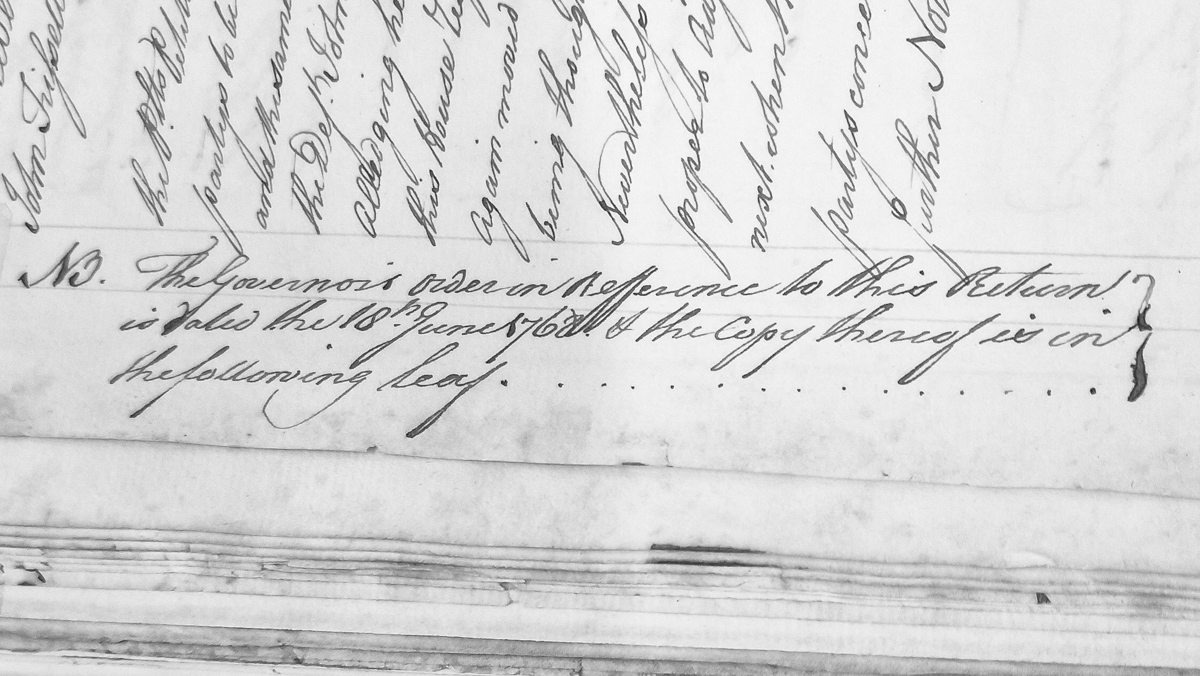 John
the
partys to be
and the same
the Def.t John
Alledging he
this House
again moved
being though
Nevertheless
proper to
next, when
partys conce
further Not
NB. The Governors order in Refference to this Return
is dated the 18th. June 1768. & the Copy thereof is in
the following leaf. . . . . . . . . . . . .